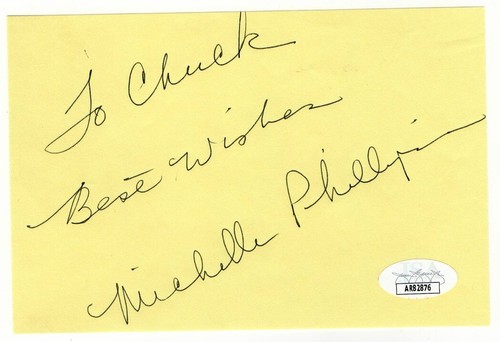 To Chuck
Best Wishes
Michelle Phillips
AR82876